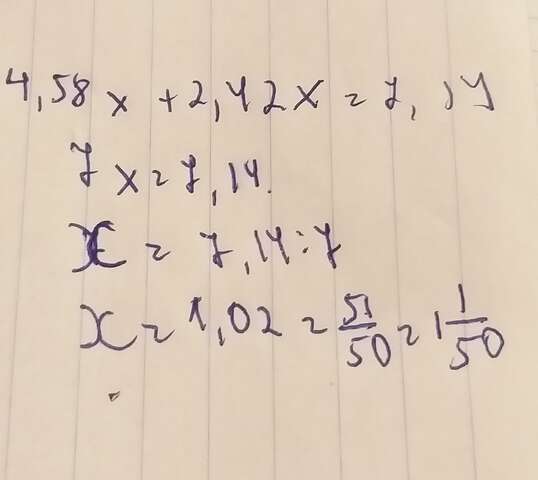 4,58x + 2,42x = 7,14
7x = 7,14.
x = 7,14:7
x = 1,02 = 51/50 = 1 1/50